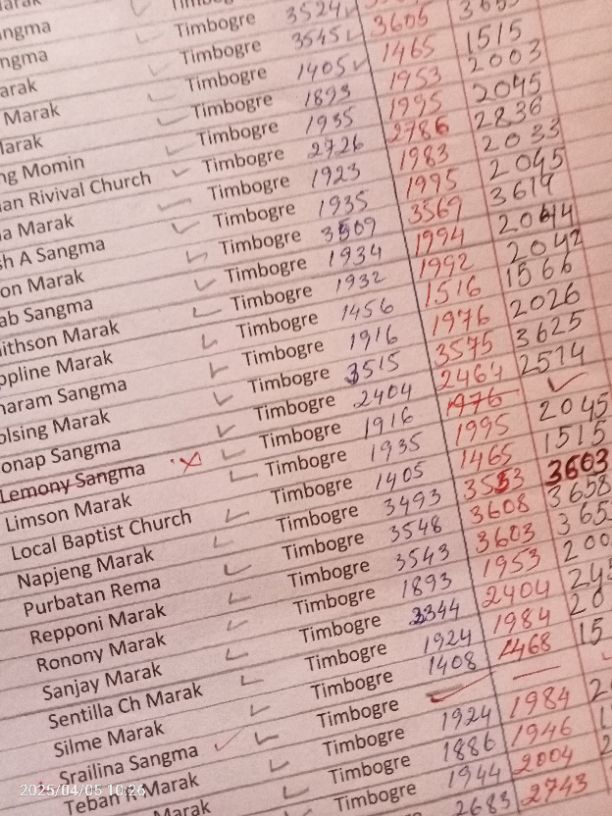 ngma Timbogre 3524
arak Timbogre 3545 3605 3655
Marak Timbogre 1405 1465 1515
arak Timbogre 1893 1953 2003
ng Momin Timbogre 1935 1995 2045
an Rivival Church Timbogre 2726 2786 2836
a Marak Timbogre 1923 1983 2033
h A Sangma Timbogre 1935 1995 2045
on Marak Timbogre 3509 3569 3619
ab Sangma Timbogre 1934 1994 2044
ithson Marak Timbogre 1932 1992 2042
ppline Marak Timbogre 1456 1516 1566
haram Sangma Timbogre 1916 1976 2026
olsing Marak Timbogre 3515 3575 3625
onap Sangma Timbogre 2404 2464 2514
Lemony Sangma Timbogre 1916 1976
Limson Marak Timbogre 1935 1995 2045
Local Baptist Church Timbogre 1405 1465 1515
Napjeng Marak Timbogre 3493 3553 3603
Purbatan Rema Timbogre 3548 3608 3658
Repponi Marak Timbogre 3543 3603 365
Ronony Marak Timbogre 1893 1953 200
Sanjay Marak Timbogre 2344 2404 24
Sentilla Ch Marak Timbogre 1924 1984 20
Silme Marak Timbogre 1408 1468 15
Srailina Sangma Timbogre
Teban R Marak Timbogre 1924 1984 2
Marak Timbogre 1886 1946
Timbogre 1944 2004
2683 2743
2025/04/05 10:26